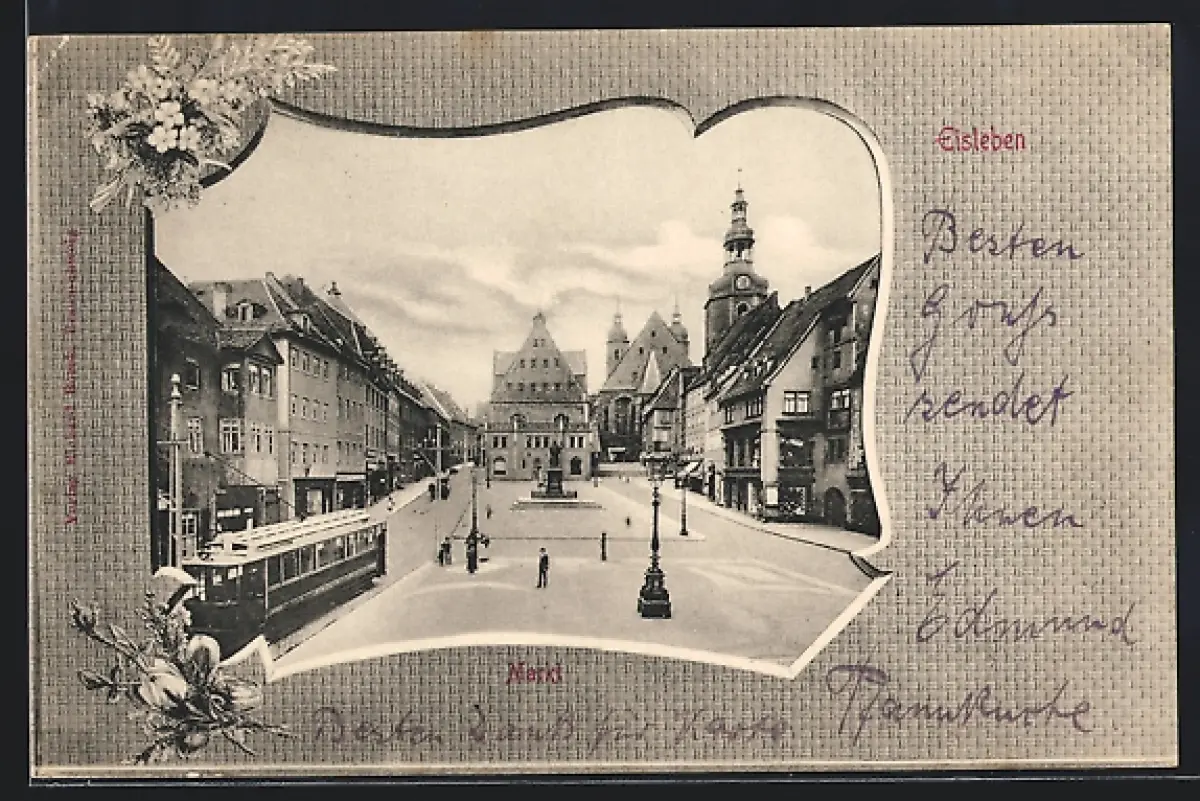 Eisleben
Besten
Gruß
sendet
Ihnen
Edmund
Markt
Besten Dank für Karte
Verlag